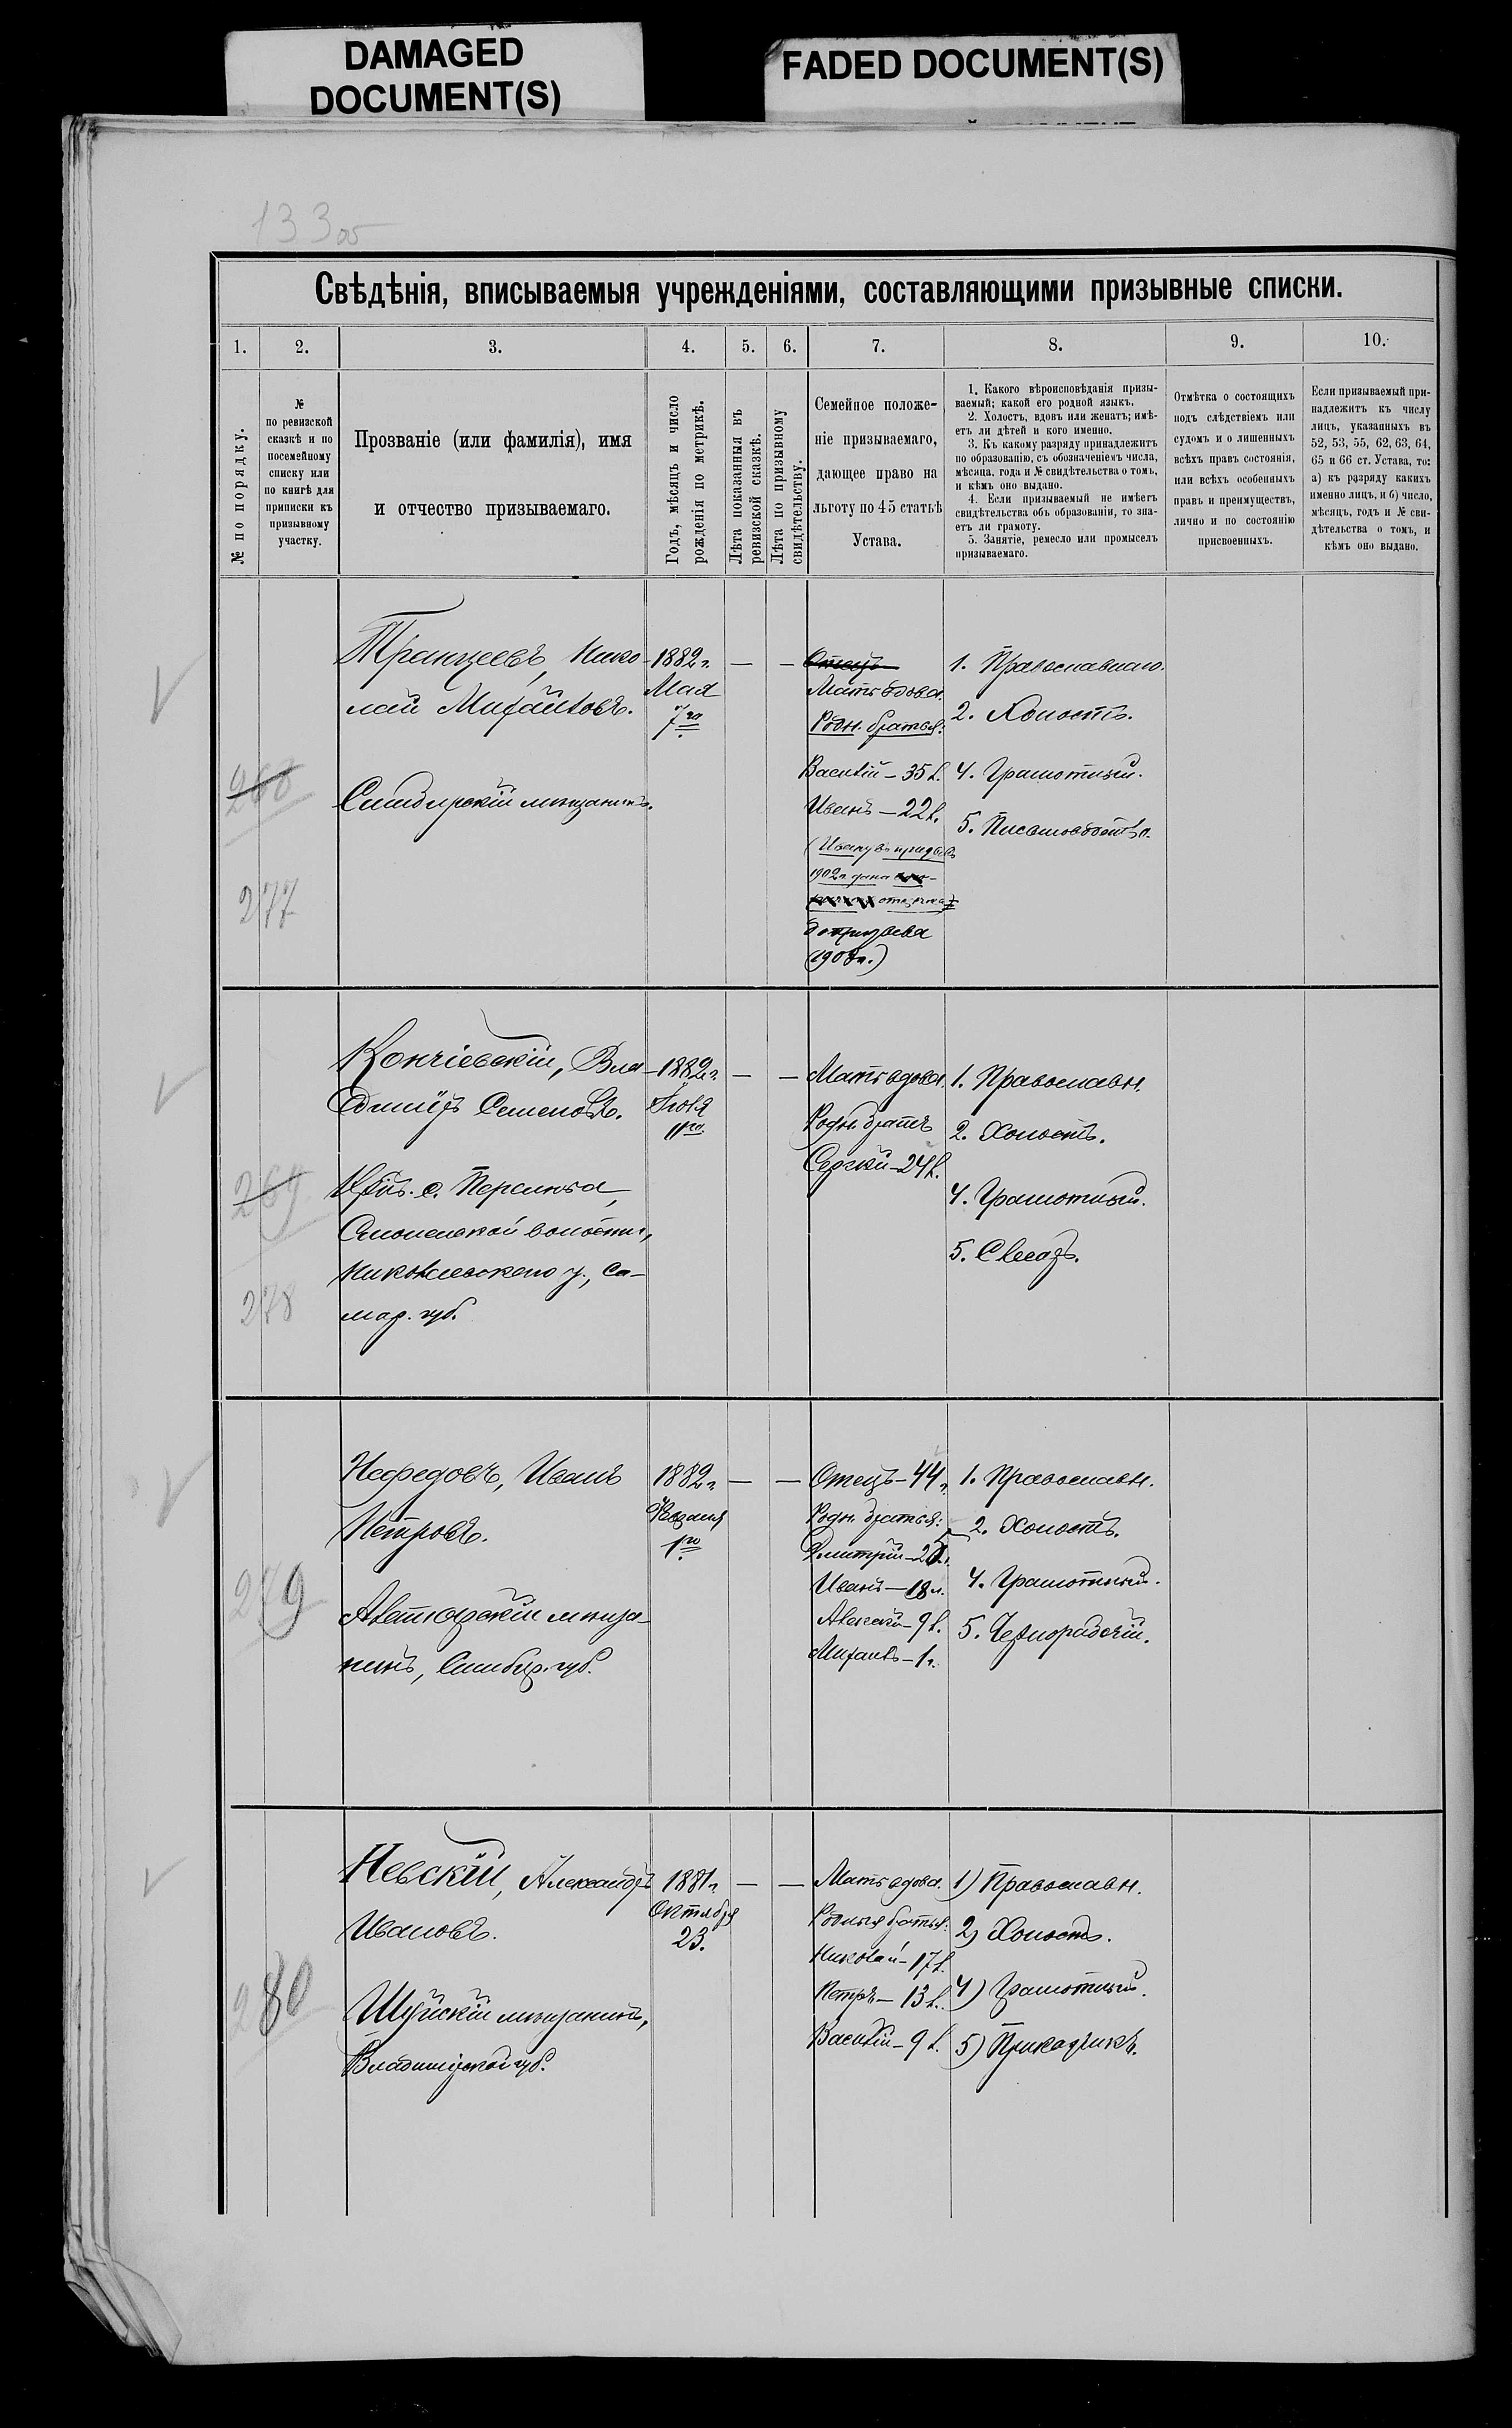 DAMAGED
DOCUMENT(S)
FADED DOCUMENT(S)
133 об
Свѣдѣнія, вписываемыя учрежденіями, составляющими призывные списки.
1.
2.
3.
4.
5.
6.
7.
8.
9.
10.
№ по порядку.
№
по ревизской
сказкѣ и по
посемейному
списку или
по книгѣ для
приписки къ
призывному
участку.
Прозваніе (или фамилія), имя
и отчество призываемаго.
Годъ, мѣсяцъ и число
рожденія по метрикѣ.
Лѣта показанныя въ
ревизской сказкѣ.
Лѣта по призывному
свидѣтельству.
Семейное положе-
ніе призываемаго,
дающее право на
льготу по 45 статьѣ
Устава.
1. Какого вѣроисповѣданія призы-
ваемый; какой его родной языкъ.
2. Холостъ, вдовъ или женатъ; имѣ-
етъ ли дѣтей и кого именно.
3. Къ какому разряду принадлежитъ
по образованію, съ обозначеніемъ числа,
мѣсяца, года и № свидѣтельства о томъ,
и кѣмъ оно выдано.
4. Если призываемый не имѣетъ
свидѣтельства объ образованіи, то зна-
етъ ли грамоту.
5. Занятіе, ремесло или промыселъ
призываемаго.
Отмѣтка о состоящихъ
подъ слѣдствіемъ или
судомъ и о лишенныхъ
всѣхъ правъ состоянія,
или всѣхъ особенныхъ
правъ и преимуществъ,
лично и по состоянію
присвоенныхъ.
Если призываемый при-
надлежитъ къ числу
лицъ, указанныхъ въ
52, 53, 55, 62, 63, 64,
65 и 66 ст. Устава, то:
а) къ разряду какихъ
именно лицъ, и б) число,
мѣсяцъ, годъ и № сви-
дѣтельства о томъ, и
кѣмъ оно выдано.
268
277
Транцеевъ, Нико-
лай Михайловъ.
Симбирскій мѣщанинъ.
1882 г.
Мая
7го
— —
Отецъ
Мать вдова.
Родн. братья:
Василій – 35 л.
Иванъ – 22 л.
(Ивану въ призывъ
1902 г. дана
отсрочка
до призыва
1. Православнаго.
2. Холостъ.
4. Грамотный.
5. Письмоводство.
269
278
Кончіевскій, Вла-
димiръ Семеновъ.
с. Перелюба,
Смоленской волости,
Николаевскаго у., Са-
мар. губ.
1882 г.
Іюля
11го
— —
Мать вдова.
Родн. братъ
Сергѣй – 24 л.
1. Православн.
2. Холостъ.
4. Грамотный.
5. Слесарь.
279
Нефедовъ, Иванъ
Петровъ.
Алатырскій мѣща-
нинъ, Симбир. губ.
1882 г.
1го
— —
Отецъ – 44 г.
Родн. братья:
Дмитрій –
Иванъ – 18 л.
Алексѣй – 9 л.
Михаилъ – 1 г.
1. Православн.
2. Холостъ.
4. Грамотный.
5. Чернорабочій.
280
Невскій, Александръ
Ивановъ.
Шуйскій мѣщанинъ,
Владимірской губ.
1881 г.
Октября
23.
— —
Мать вдова.
Родные братья:
Николай – 17 л.
Петръ – 13 л.
Василій – 9 л.
1) Православн.
2) Холостъ.
4) Грамотный.
5) Приказчикъ.